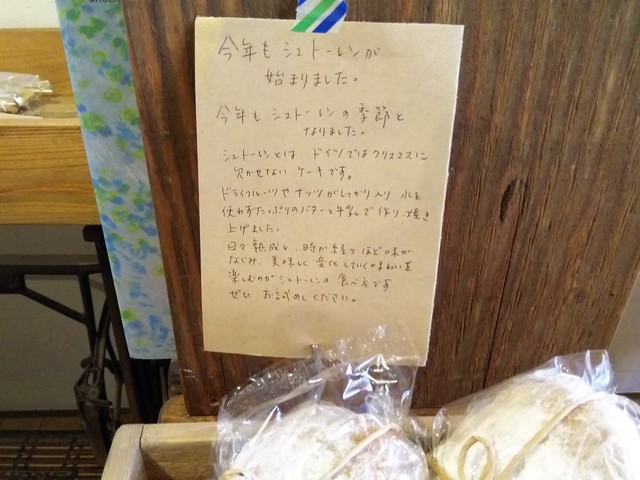 今年も シュトーレンが
始まりました。
今年も シュトーレンの季節と
なりました。
シュトーレンとは ドイツではクリスマスに
欠かせない ケーキです。
ドライフルーツや ナッツがしっかり入り 水を
使わずたっぷりのバターと牛乳で作り、焼き
上げました。
日々熟成し、時が経つほど味が
なじみ、美味しく変化していく味わいを
楽しむのがシュトーレンの食べ方です
ぜひ お試めしください。